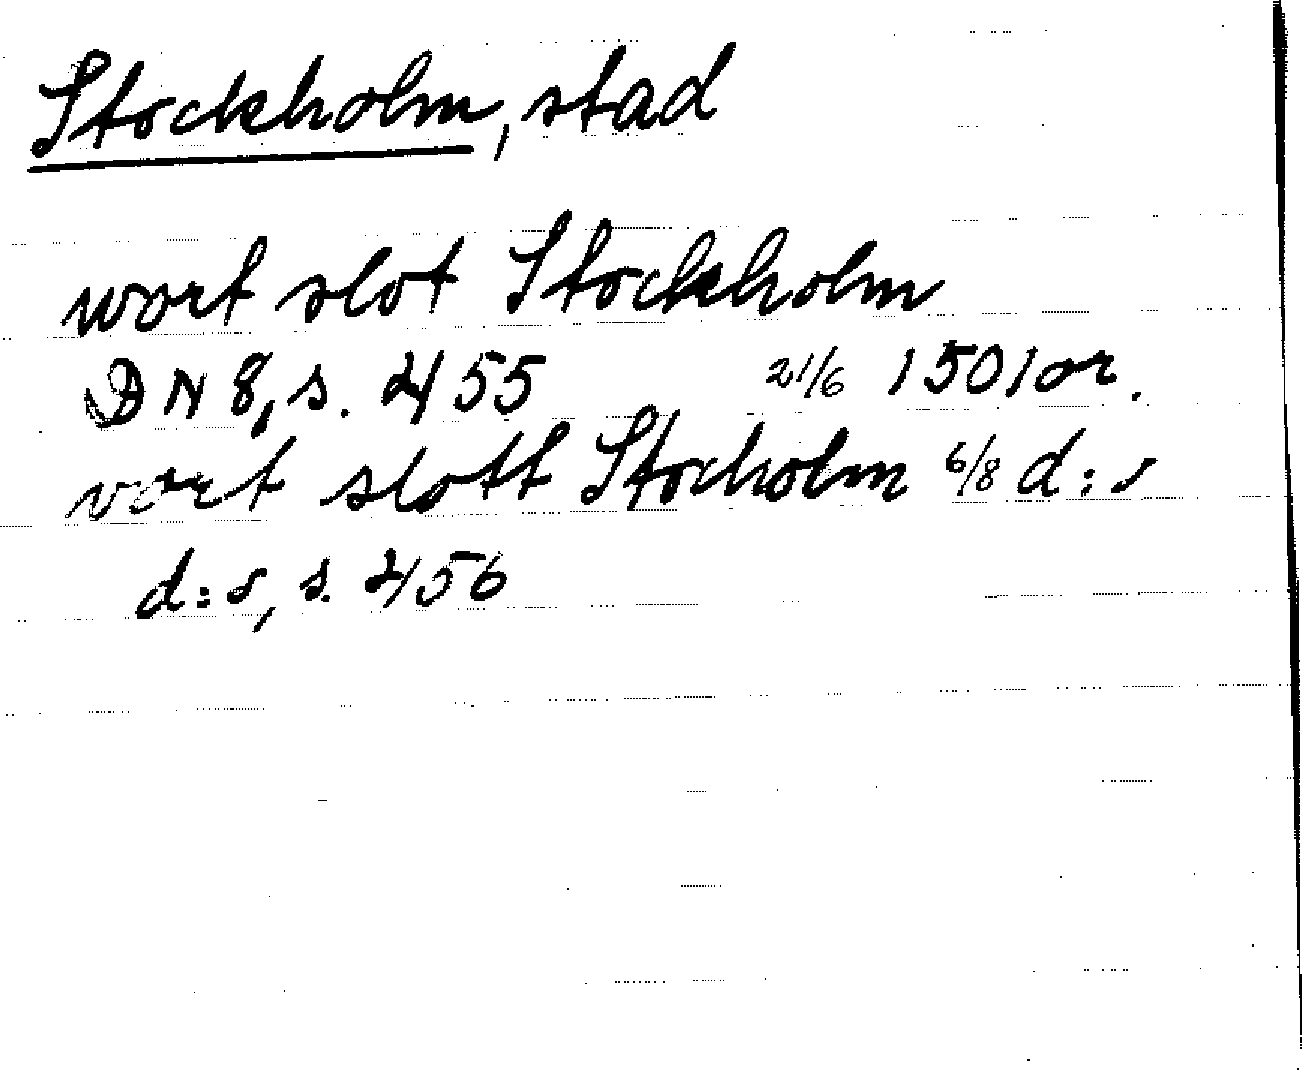 Stockholm, stad
wort slot Stockholm
DN 8, s. 455 21/6 1501 or.
vort slott Stocholm 6/8 d:o
d:o, s. 456